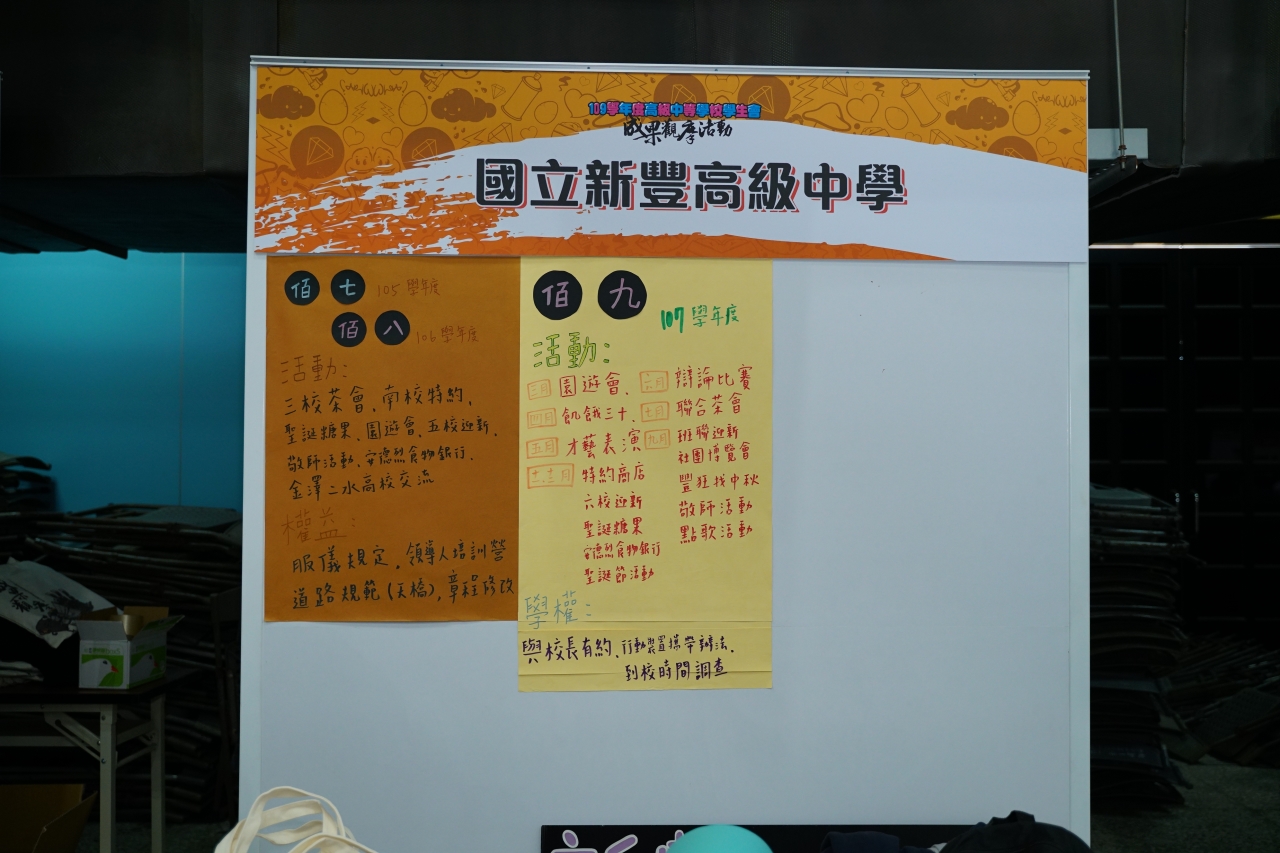 108學年度高級中等學校學生會
成果觀摩活動
國立新豐高級中學
佰七 105學年度
佰八 106學年度
活動:
三校茶會、南校特約、
聖誕糖果、園遊會、五校迎新、
敬師活動、安德烈食物銀行、
金澤二水高校交流
權益:
服儀規定、領導人培訓營
道路規範(天橋)、章程修改
佰九
107學年度
活動:
三月 園遊會、
四月 飢餓三十、
五月 才藝表演
十一.十二月 特約商店
六校迎新
聖誕糖果
安德烈食物銀行
聖誕節活動
六月 辯論比賽
七月 聯合茶會
九月 班聯迎新
社團博覽會
豐狂找中秋
敬師活動
點歌活動
學權:
與校長有約、行動裝置攜帶辦法、
到校時間調查